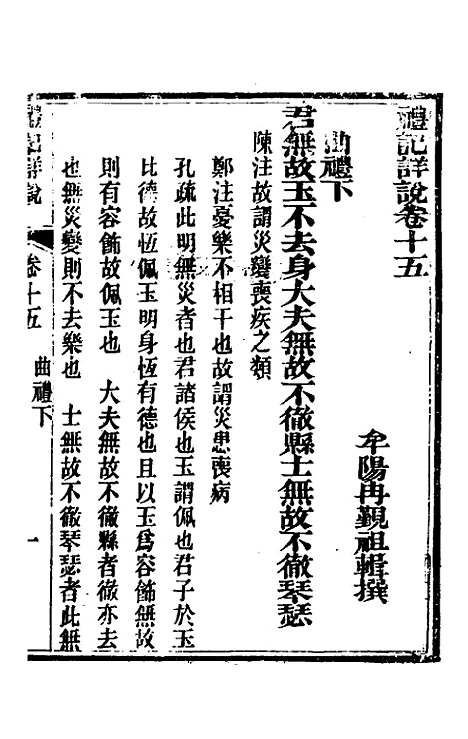 禮記詳說卷十五
牟陽冉覲祖輯撰
曲禮下
君無故玉不去身大夫無故不徹縣士無故不徹琴瑟
陳注故謂災變喪疾之類
鄭注憂樂不相干也故謂災患喪病
孔疏此明無災者也君諸侯也玉謂佩也君子於玉
比德故恆佩玉明身恆有德也且以玉爲容飾無故
則有容飾故佩玉也　大夫無故不徹縣者徹亦去
也無災變則不去樂也　士無故不徹琴瑟者此無
禮記詳說　卷十五　曲禮下　一